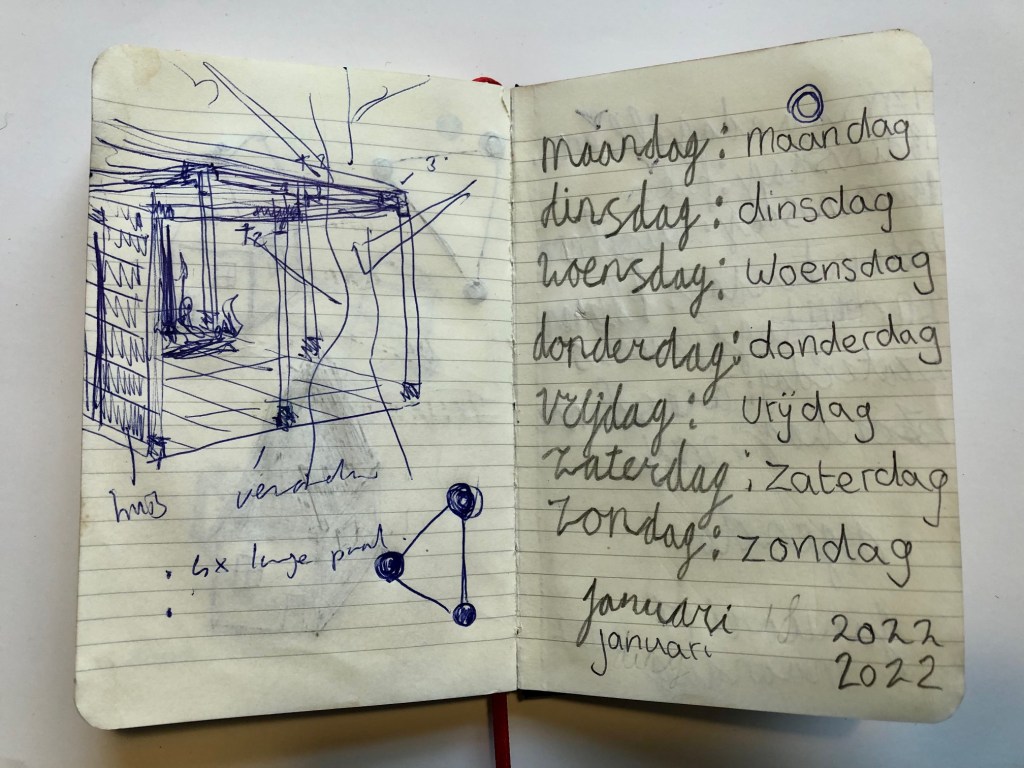 x2
huis
veranda
lange paal
maandag: maandag
dinsdag: dinsdag
woensdag: woensdag
donderdag: donderdag
vrijdag: vrijdag
zaterdag: zaterdag
zondag: zondag
januari 2022
januari 2022